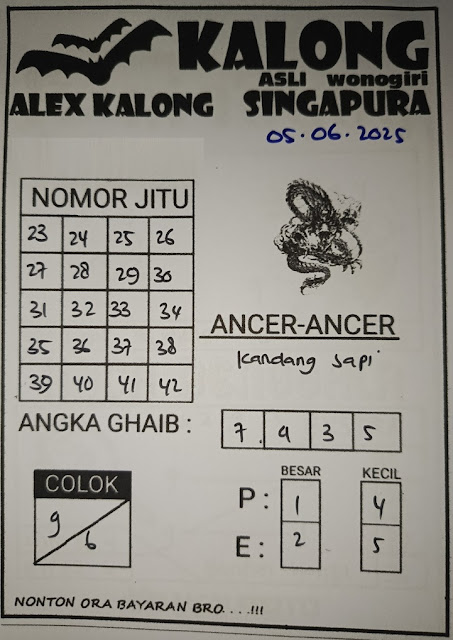 KALONG
ASLI wonogiri
ALEX KALONG SINGAPURA
05.06.2025
NOMOR JITU
23 24 25 26
27 28 29 30
31 32 33 34
35 36 37 38
39 40 41 42
ANCER-ANCER
Kandang sapi
ANGKA GHAIB : 7 9 3 5
COLOK
9 6
BESAR KECIL
P : 1 4
E : 2 5
NONTON ORA BAYARAN BRO. . . .!!!